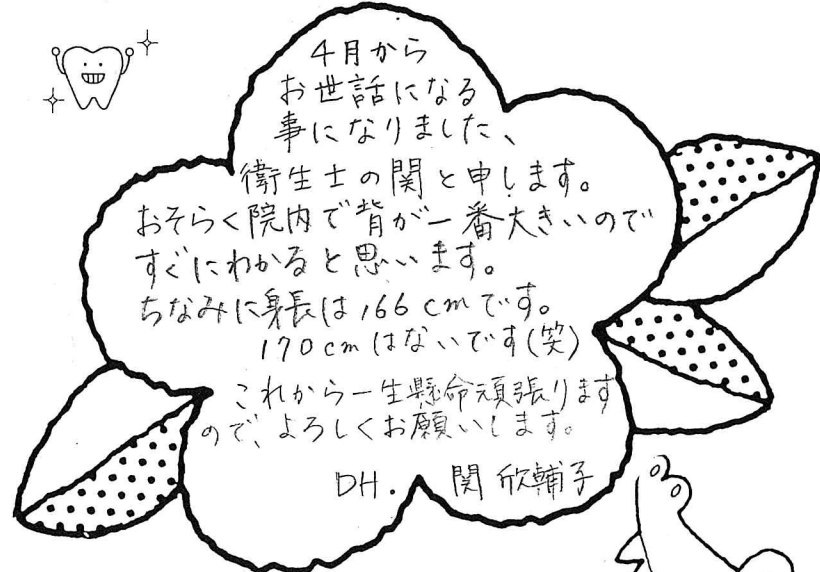 4月から
お世話になる
事になりました、
衛生士の関と申します。
おそらく院内で背が一番大きいので
すぐにわかると思います。
ちなみに身長は166cmです。
170cmはないです(笑)
これから一生懸命頑張ります
ので、よろしくお願いします。
DH. 関 欣輔子